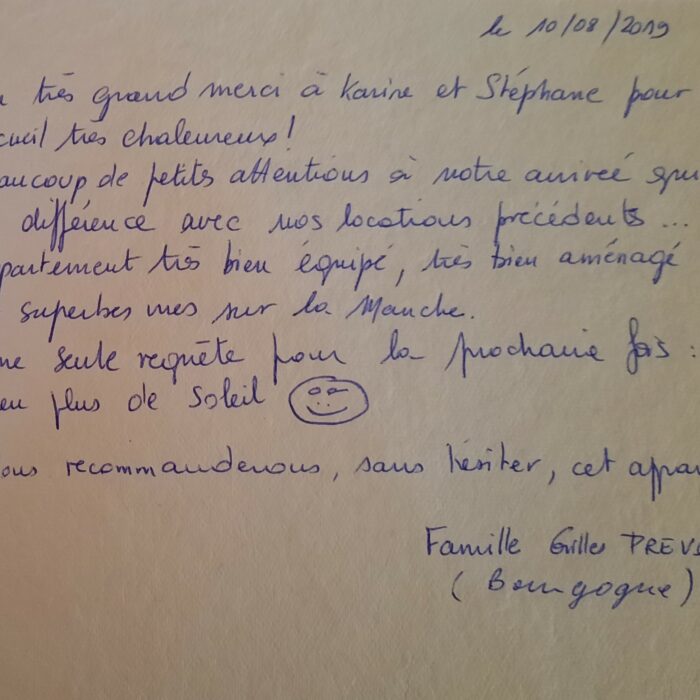 le 10/08/2019
très grand merci à Karine et Stéphane pour
cueil très chaleureux!
aucoup de petits attentions à notre arrivée qui
différence avec nos locations précédents...
partement très bien équipé, très bien aménagé
superbes vues sur la Manche.
ne seule requête pour la prochaine fois :
eu plus de soleil
ous recommanderons, sans hésiter, cet appar
Famille Gilles PREV
(Bourgogne)